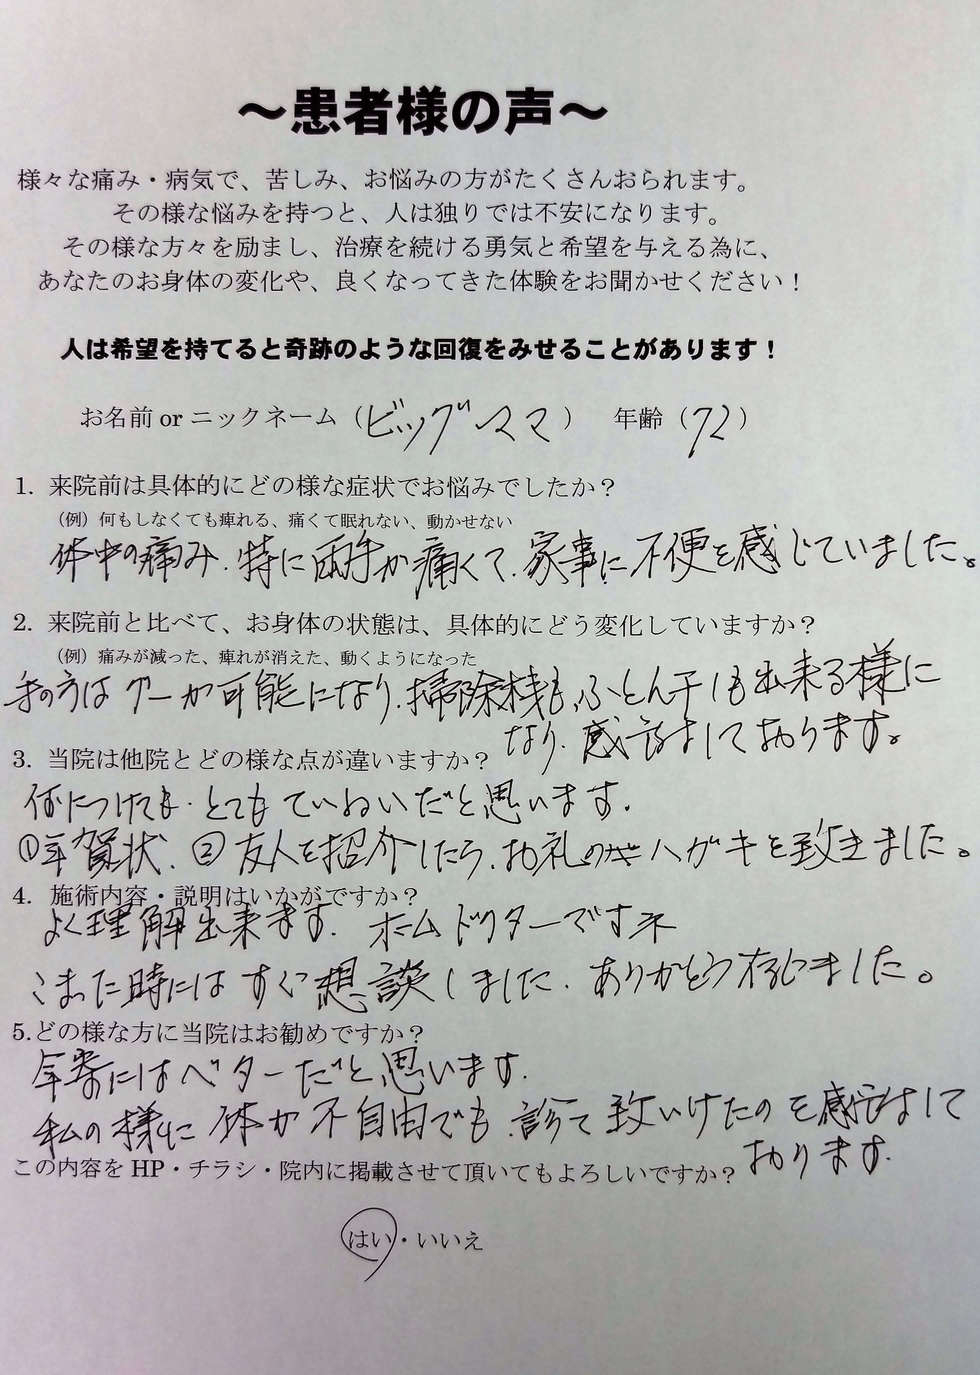 ～患者様の声～
様々な痛み・病気で、苦しみ、お悩みの方がたくさんおられます。
その様な悩みを持つと、人は独りでは不安になります。
その様な方々を励まし、治療を続ける勇気と希望を与える為に、
あなたのお身体の変化や、良くなってきた体験をお聞かせください！
人は希望を持てると奇跡のような回復をみせることがあります！
お名前 or ニックネーム（ビッグママ） 年齢（72）
1. 来院前は具体的にどの様な症状でお悩みでしたか？
（例）何もしなくても痺れる、痛くて眠れない、動かせない
体中の痛み、特に両手が痛くて、家事に不便を感じていました。
2. 来院前と比べて、お身体の状態は、具体的にどう変化していますか？
（例）痛みが減った、痺れが消えた、動くようになった
手の方はグーが可能になり、掃除機も、ふとん干しも出来る様に
なり、感謝しております。
3. 当院は他院とどの様な点が違いますか？
何につけても、とてもていねいだと思います。
①年賀状、②友人を紹介したら、お礼のハガキを致きました。
4. 施術内容・説明はいかがですか？
よく理解出来ます。ホームドクターですネ
こまった時にはすぐ想談しました、ありがとう存じました。
5.どの様な方に当院はお勧めですか？
年寄にはベターだと思います。
私の様に体が不自由でも、診て致いけたのを感謝して
おります。
この内容を HP・チラシ・院内に掲載させて頂いてもよろしいですか？
はい・いいえ